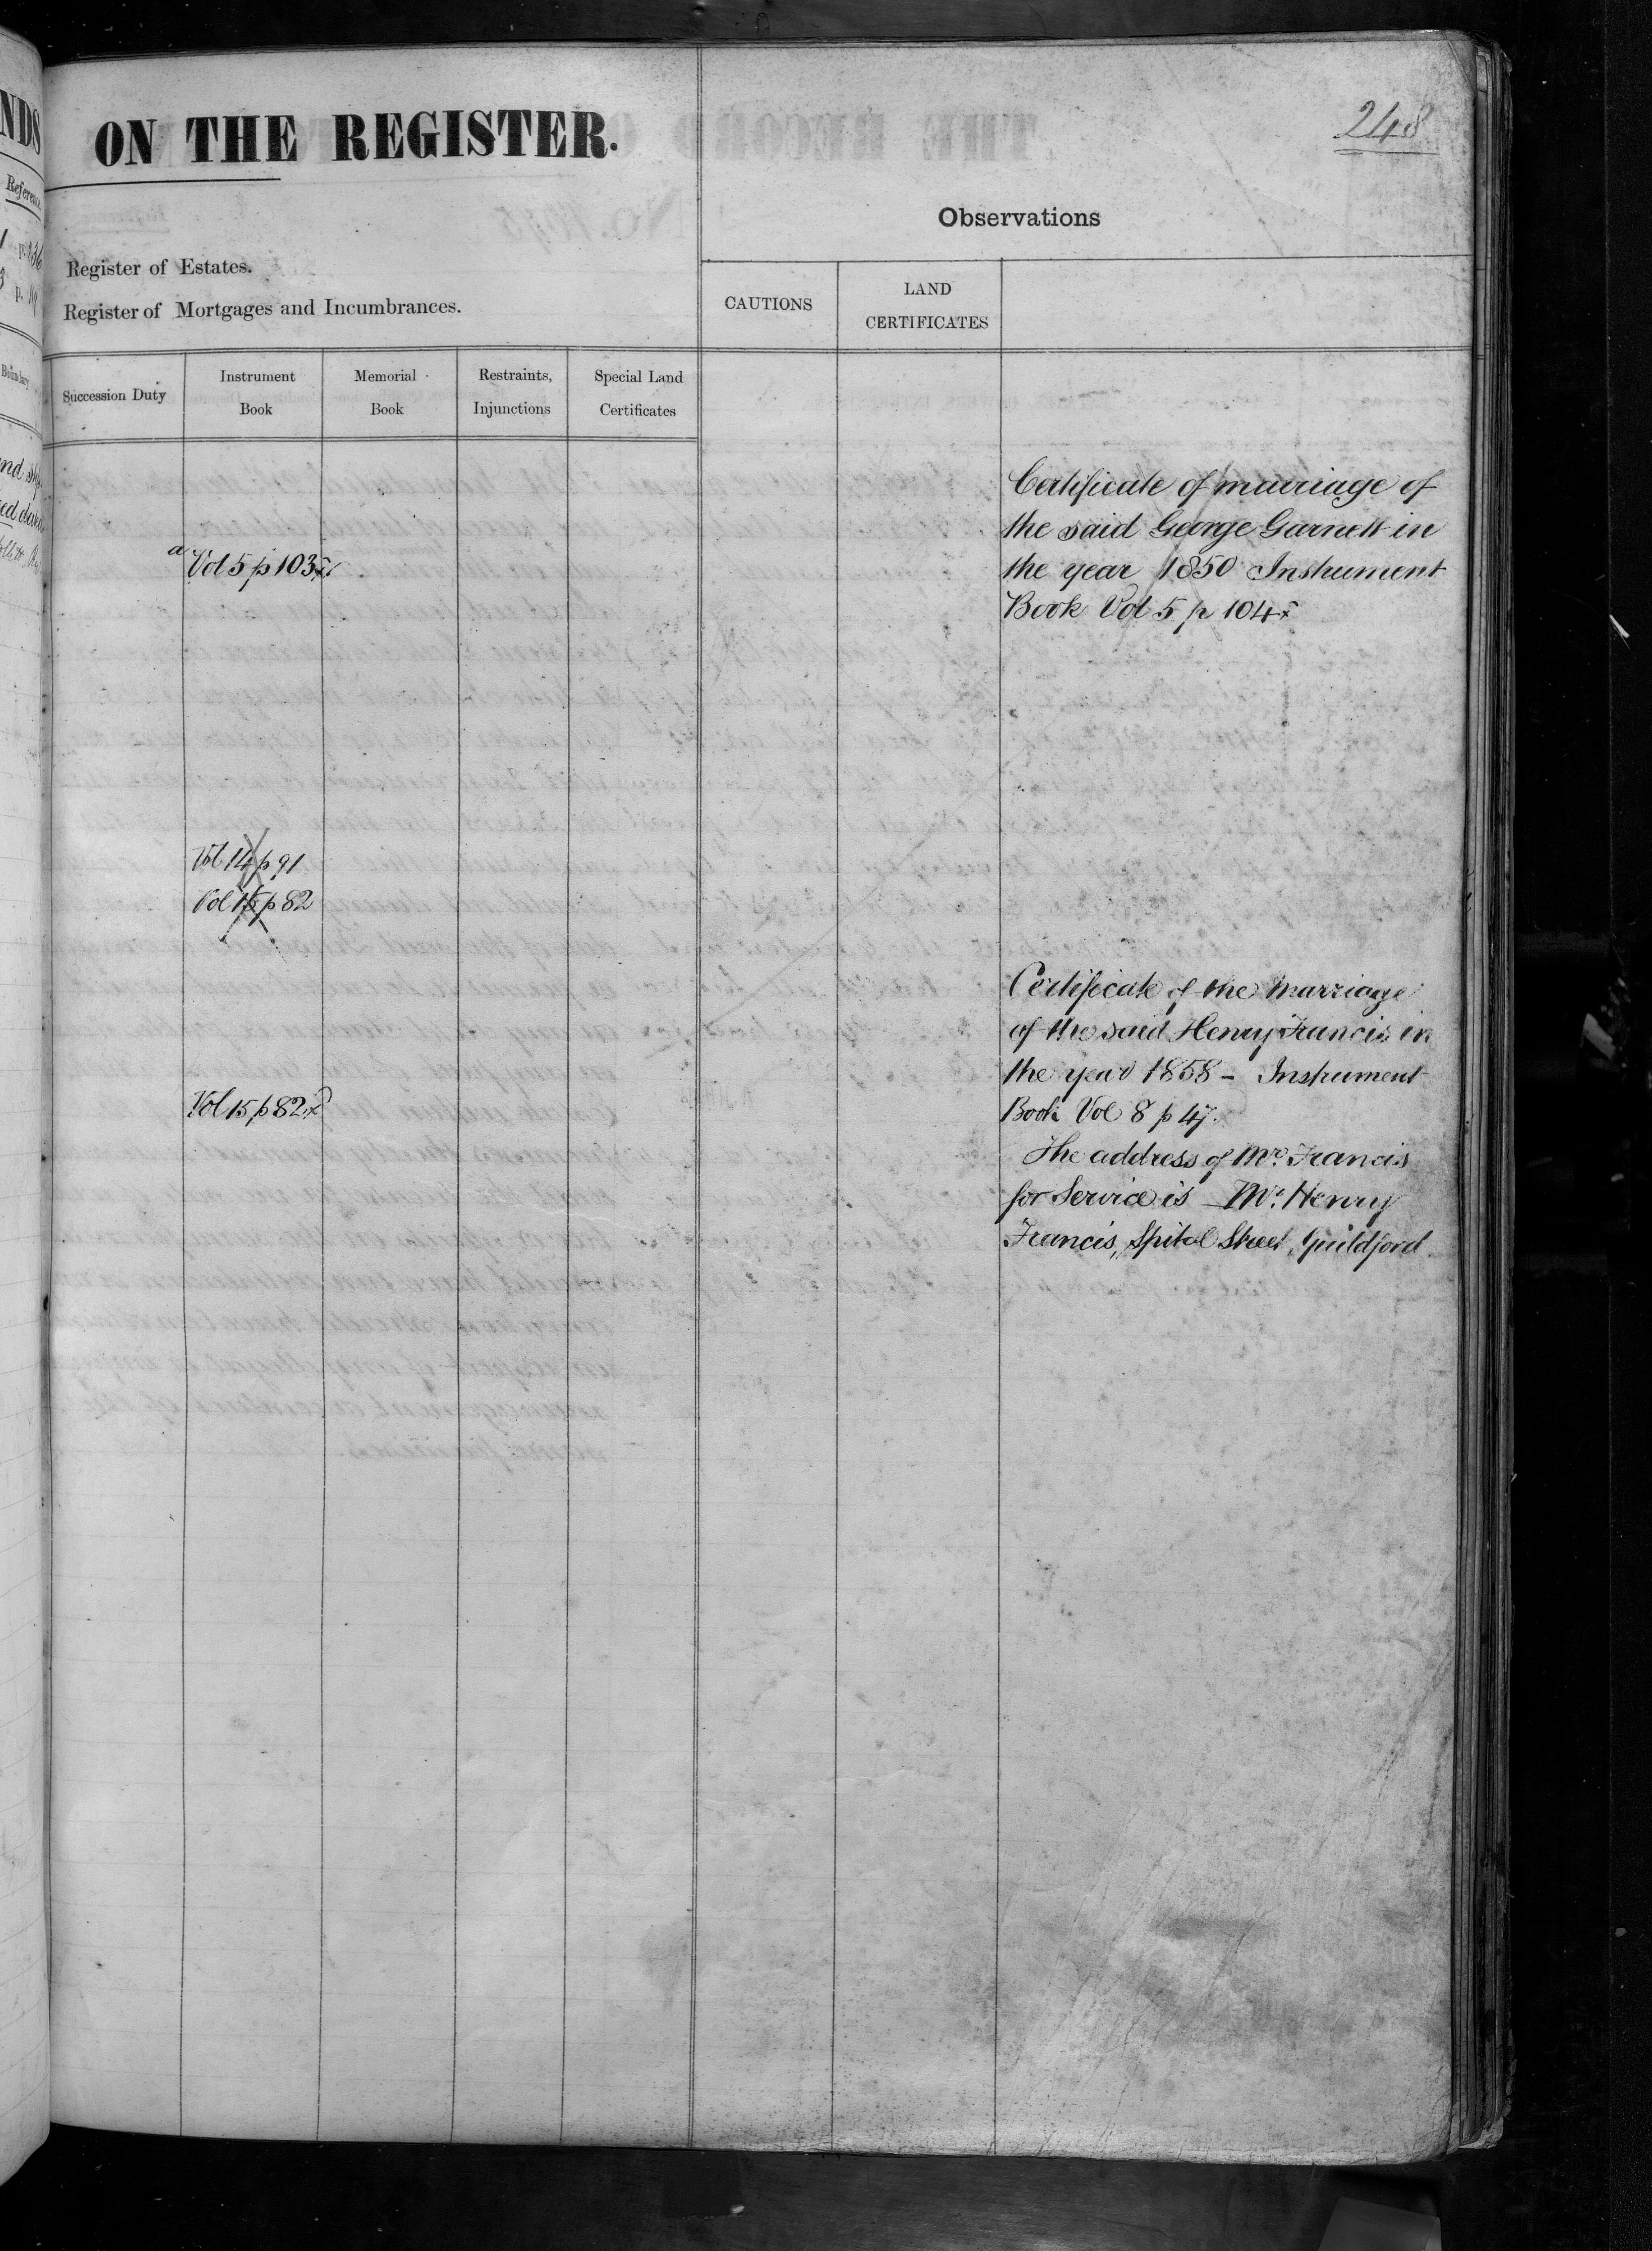 248
ON THE REGISTER.
Observations
Register of Estates.
Register of Mortgages and Incumbrances.
CAUTIONS
LAND
CERTIFICATES
Succession Duty
Instrument
Book
Memorial
Book
Restraints,
Injunctions
Special Land
Certificates
Certificate of marriage of
the said George Garnett in
a Vol 5 p 103
the year 1850 Instrument
Book Vol 5 p 104
Vol 14 p 91
Vol 15 p 82
Certificate of the Marriage
of the said Henry Francis in
the year 1858 - Instrument
Vol 15 p 82
Book Vol 8 p 47.
The address of Mr. Francis
for Service is Mr. Henry
Francis, Spital Street, Guildford
NDS
Reference
Boundary